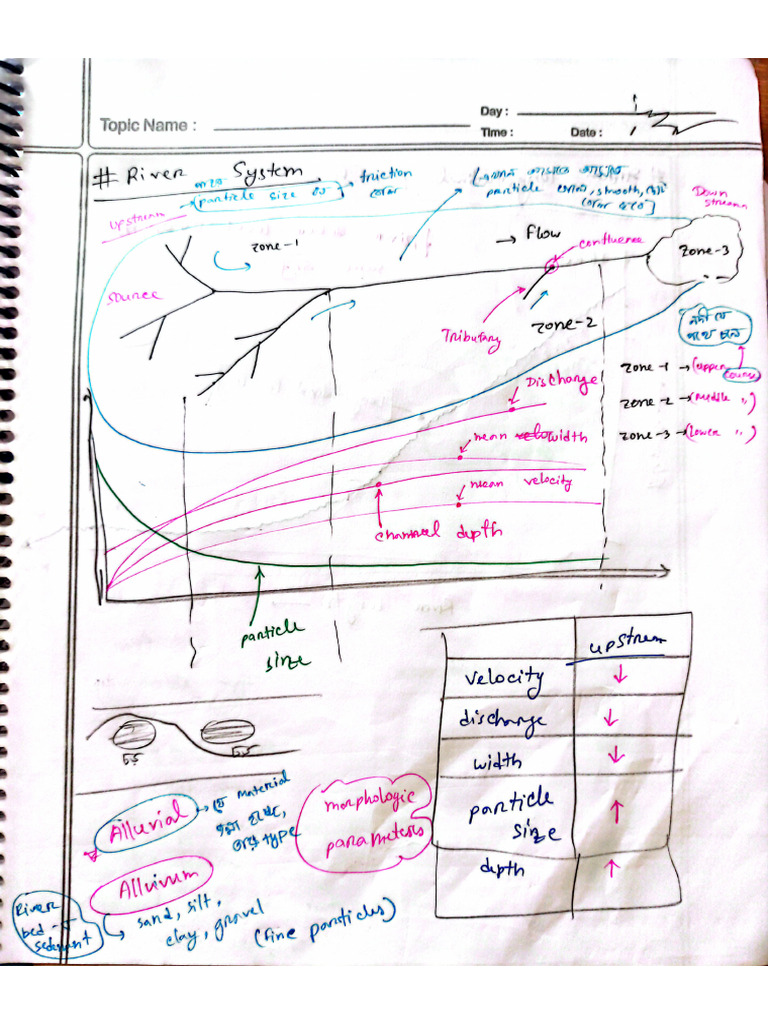 Day :
Topic Name :
Time : Date :
# River System
particle size friction
upstream
particle smooth,
Down stream
zone-1
→ Flow
confluence
zone-3
source
Tributary
zone-2
zone-1 → (upper course)
zone-2 → (middle ")
zone-3 → (Lower ")
Discharge
mean width
mean velocity
channel depth
particle size
upstream
velocity ↓
discharge ↓
width ↓
particle size ↑
depth ↑
Alluvial → material type
morphologic parameters
Alluivum
River bed sediment
sand, silt, clay, gravel
(fine particles)